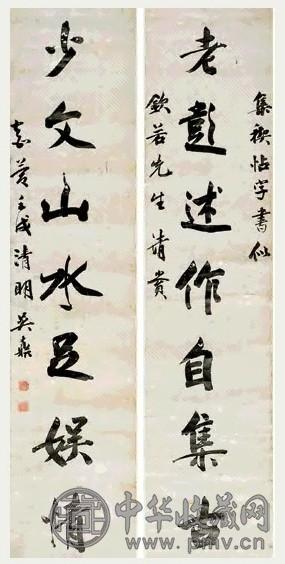 集禊帖字書似
老彭述作自集
欽若先生清賞
少文山水足娱情
壬戌清明吳
中华收藏网
www.pmv.cn